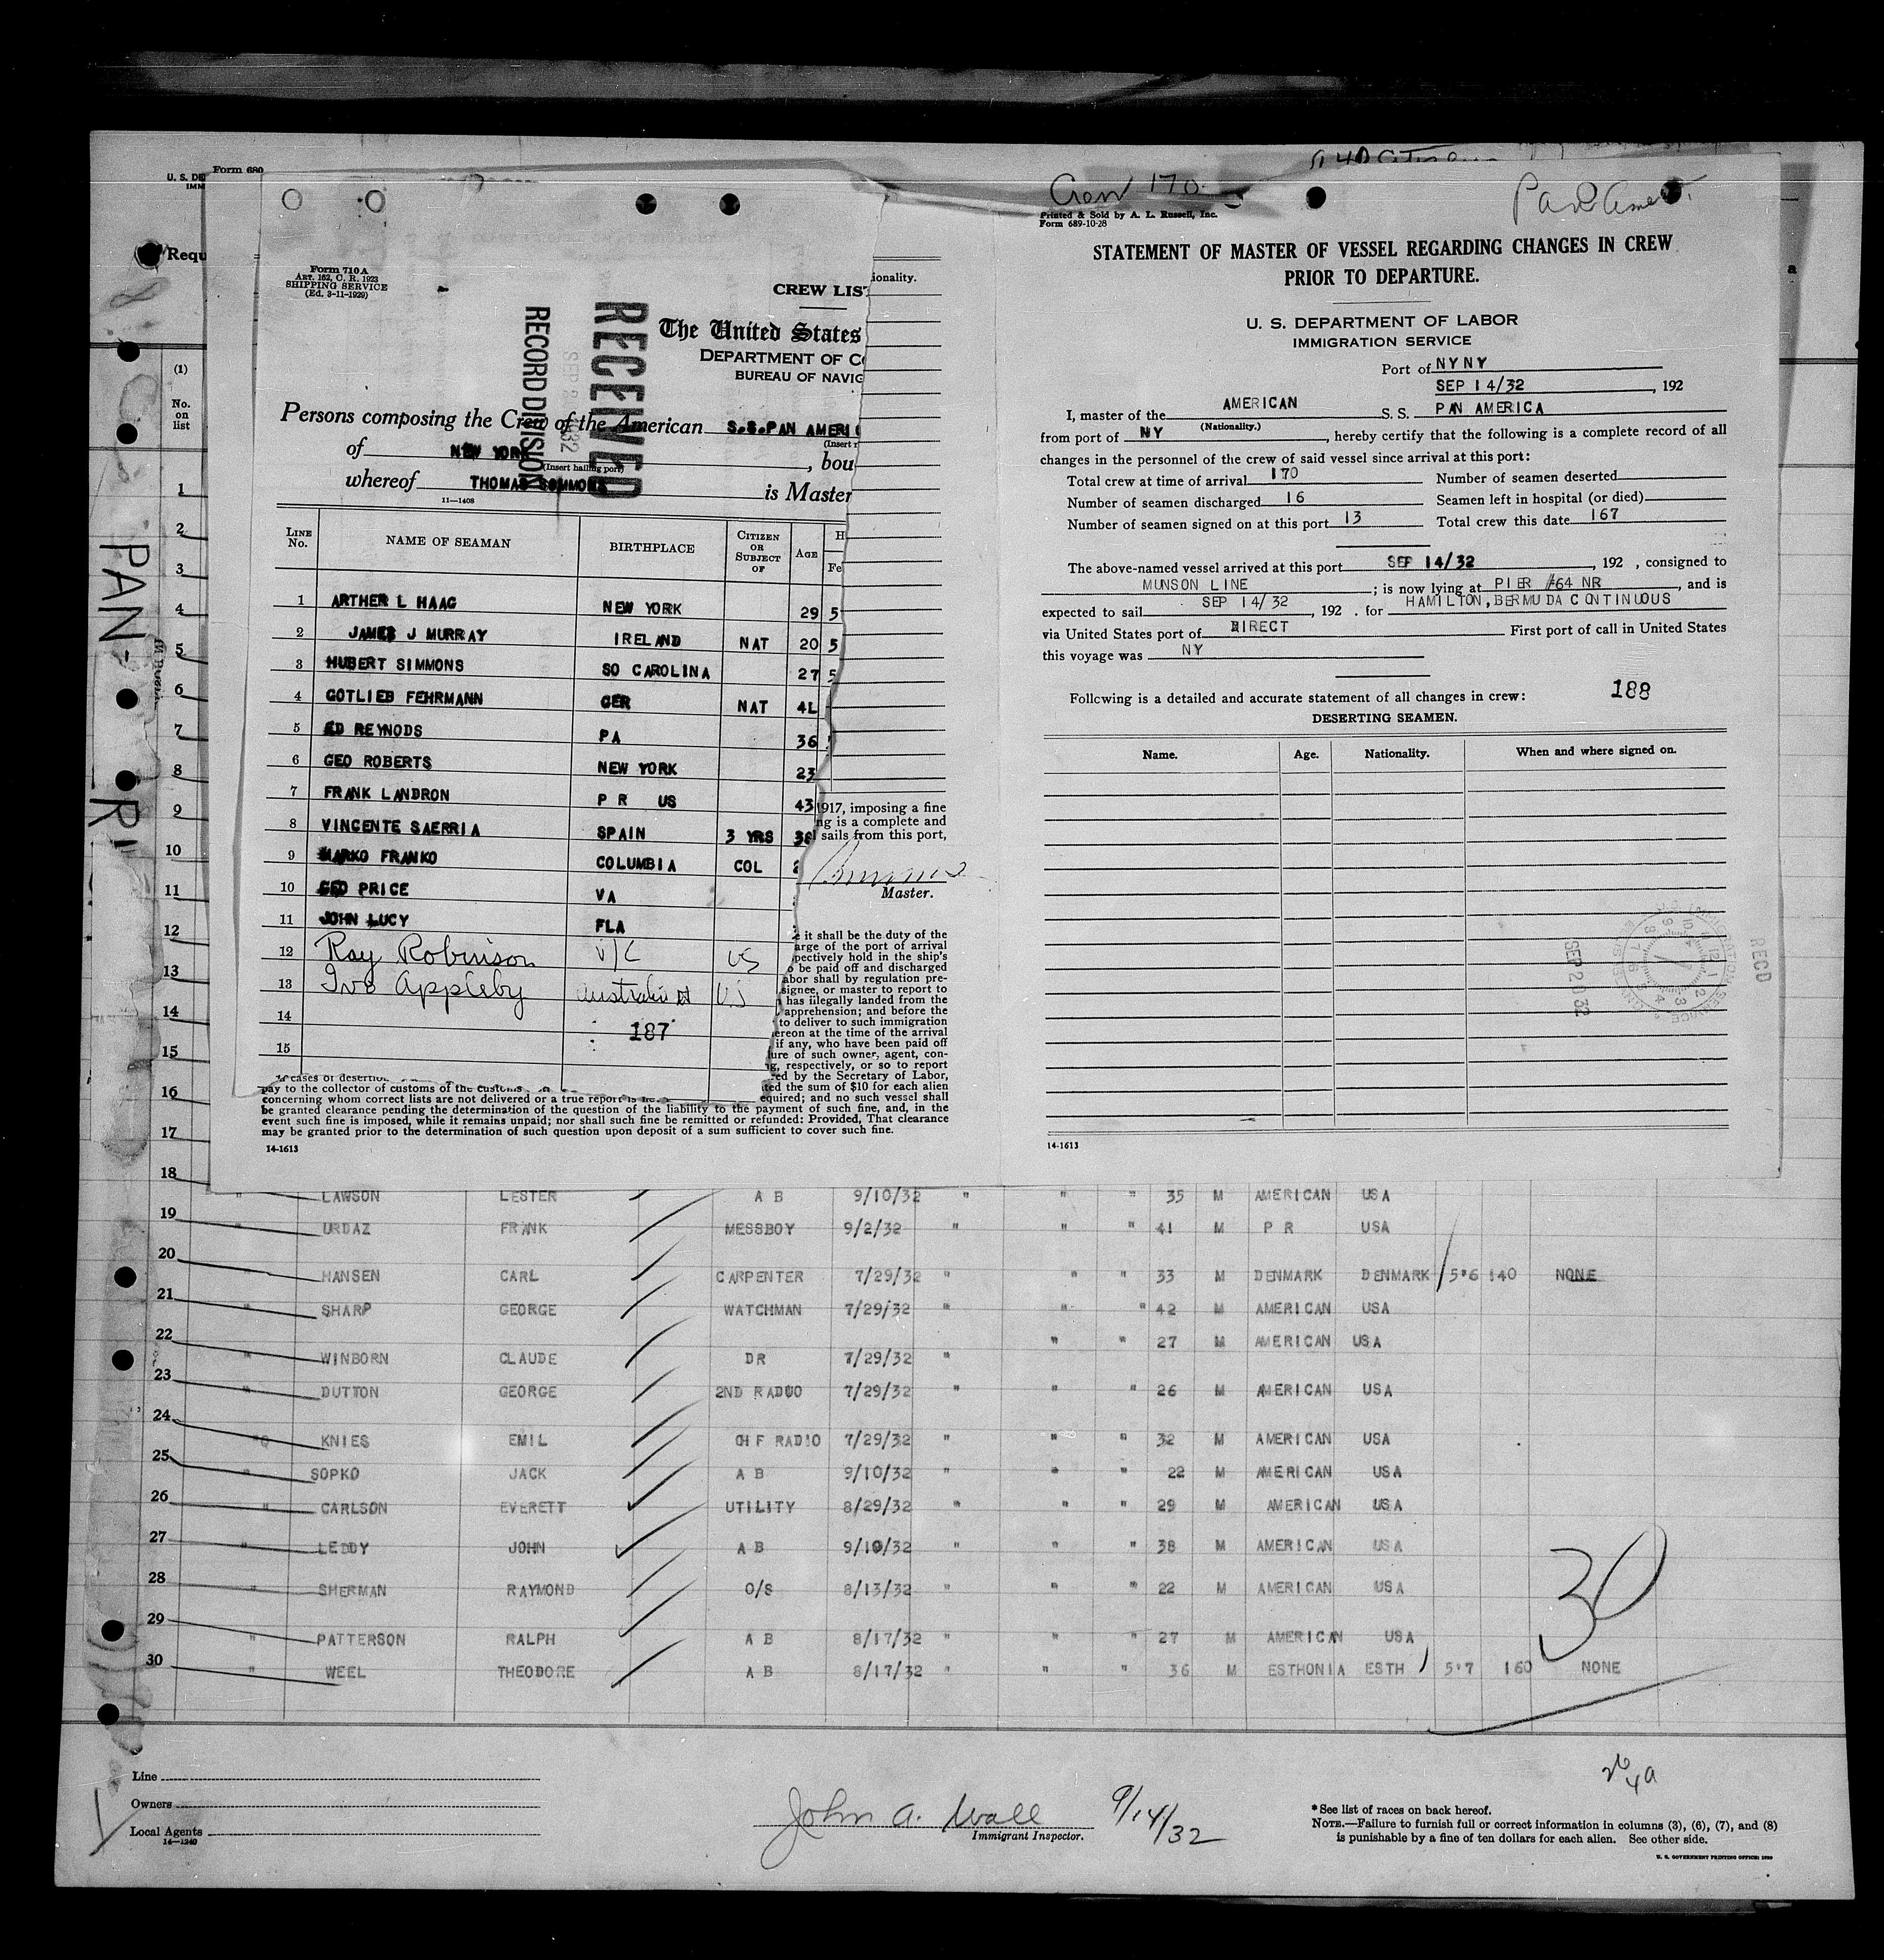 Form 680
U. S. DE
IMM
Requ
(1)
No.
on
list
1
2
3
4
5
6
7
8
9
10
11
12
13
14
15
16
17
18
PAN-
Form 710 A
ART. 162, C. R. 1923
SHIPPING SERVICE
(Ed. 3-11-1929)
CREW LIST
The United States
DEPARTMENT OF CO
BUREAU OF NAVIG
RECEIVED
RECORD DIVISION
Persons composing the Crew of the American S.S.PAN AMERIC
(Insert n
of NEW YORK, bou
(Insert hailing port)
whereof THOMAS SIMMONS is Master
11—1408
LINE No. NAME OF SEAMAN BIRTHPLACE CITIZEN OR SUBJECT OF AGE H
Fe
1 ARTHER L HAAG NEW YORK 29 5
2 JAMES J MURRAY IRELAND NAT 20 5
3 HUBERT SIMMONS SO CAROLINA 27 5
4 GOTLIEB FEHRMANN GER NAT 4L
5 ED REYNODS PA 36
6 GEO ROBERTS NEW YORK 23
7 FRANK LANDRON P R US 43
8 VINCENTE SAERRIA SPAIN 3 YRS 36
9 MARKO FRANKO COLUMBIA COL 2
10 GEO PRICE VA
11 JOHN LUCY FLA
12 Ray Robinson US
13 Ivo Appleby Australia US
14
187
15
ionality.
1917, imposing a fine
ng is a complete and
l sails from this port,
Master.
e it shall be the duty of the
arge of the port of arrival
pectively hold in the ship's
o be paid off and discharged
abor shall by regulation pre-
signee, or master to report to
has illegally landed from the
apprehension; and before the
to deliver to such immigration
ereon at the time of the arrival
if any, who have been paid off
lure of such owner, agent, con-
g, respectively, or so to report
ed by the Secretary of Labor,
cases of desertio
pay to the collector of customs of the customs ted the sum of $10 for each alien
concerning whom correct lists are not delivered or a true report is equired; and no such vessel shall
be granted clearance pending the determination of the question of the liability to the payment of such fine, and, in the
event such fine is imposed, while it remains unpaid; nor shall such fine be remitted or refunded: Provided, That clearance
may be granted prior to the determination of such question upon deposit of a sum sufficient to cover such fine.
14-1613
Crew 170
Pan Amer
Printed & Sold by A. L. Russell, Inc.
Form 689-10-28
STATEMENT OF MASTER OF VESSEL REGARDING CHANGES IN CREW
PRIOR TO DEPARTURE.
U. S. DEPARTMENT OF LABOR
IMMIGRATION SERVICE
Port of NY NY
SEP 14/32, 192
I, master of the AMERICAN S. S. PAN AMERICA
(Nationality.)
from port of NY, hereby certify that the following is a complete record of all
changes in the personnel of the crew of said vessel since arrival at this port:
Total crew at time of arrival 170 Number of seamen deserted
Number of seamen discharged 16 Seamen left in hospital (or died)
Number of seamen signed on at this port 13 Total crew this date 167
The above-named vessel arrived at this port SEP 14/32, 192 , consigned to
MUNSON LINE; is now lying at PIER #64 NR, and is
expected to sail SEP 14/32, 192 . for HAMILTON, BERMUDA CONTINUOUS
via United States port of DIRECT First port of call in United States
this voyage was NY
Following is a detailed and accurate statement of all changes in crew: 188
DESERTING SEAMEN.
Name. Age. Nationality. When and where signed on.
RECD
SEP 20 32
14-1613
" LAWSON LESTER A B 9/10/32 " " " 35 M AMERICAN USA
19 " URDAZ FRANK MESSBOY 9/2/32 " " " 41 M P R USA
20 " HANSEN CARL CARPENTER 7/29/32 " " " 33 M DENMARK DENMARK 5'6 140 NONE
21 " SHARP GEORGE WATCHMAN 7/29/32 " " " 42 M AMERICAN USA
22 " WINBORN CLAUDE DR 7/29/32 " " " 27 M AMERICAN USA
23 " DUTTON GEORGE 2ND RADUO 7/29/32 " " " 26 M AMERICAN USA
24 " KNIES EMIL CHF RADIO 7/29/32 " " " 32 M AMERICAN USA
25 " SOPKO JACK A B 9/10/32 " " " 22 M AMERICAN USA
26 " CARLSON EVERETT UTILITY 8/29/32 " " " 29 M AMERICAN USA
27 " LEDDY JOHN A B 9/10/32 " " " 38 M AMERICAN USA
28 " SHERMAN RAYMOND O/S 8/13/32 " " " 22 M AMERICAN USA
29 " PATTERSON RALPH A B 8/17/32 " " " 27 M AMERICAN USA
30 " WEEL THEODORE A B 8/17/32 " " " 36 M ESTHONIA ESTH 5'7 160 NONE
30
Line
Owners
Local Agents
14—1240
John A. Wall 9/14/32
Immigrant Inspector.
*See list of races on back hereof.
NOTE.—Failure to furnish full or correct information in columns (3), (6), (7), and (8)
is punishable by a fine of ten dollars for each alien. See other side.
U. S. GOVERNMENT PRINTING OFFICE: 1930